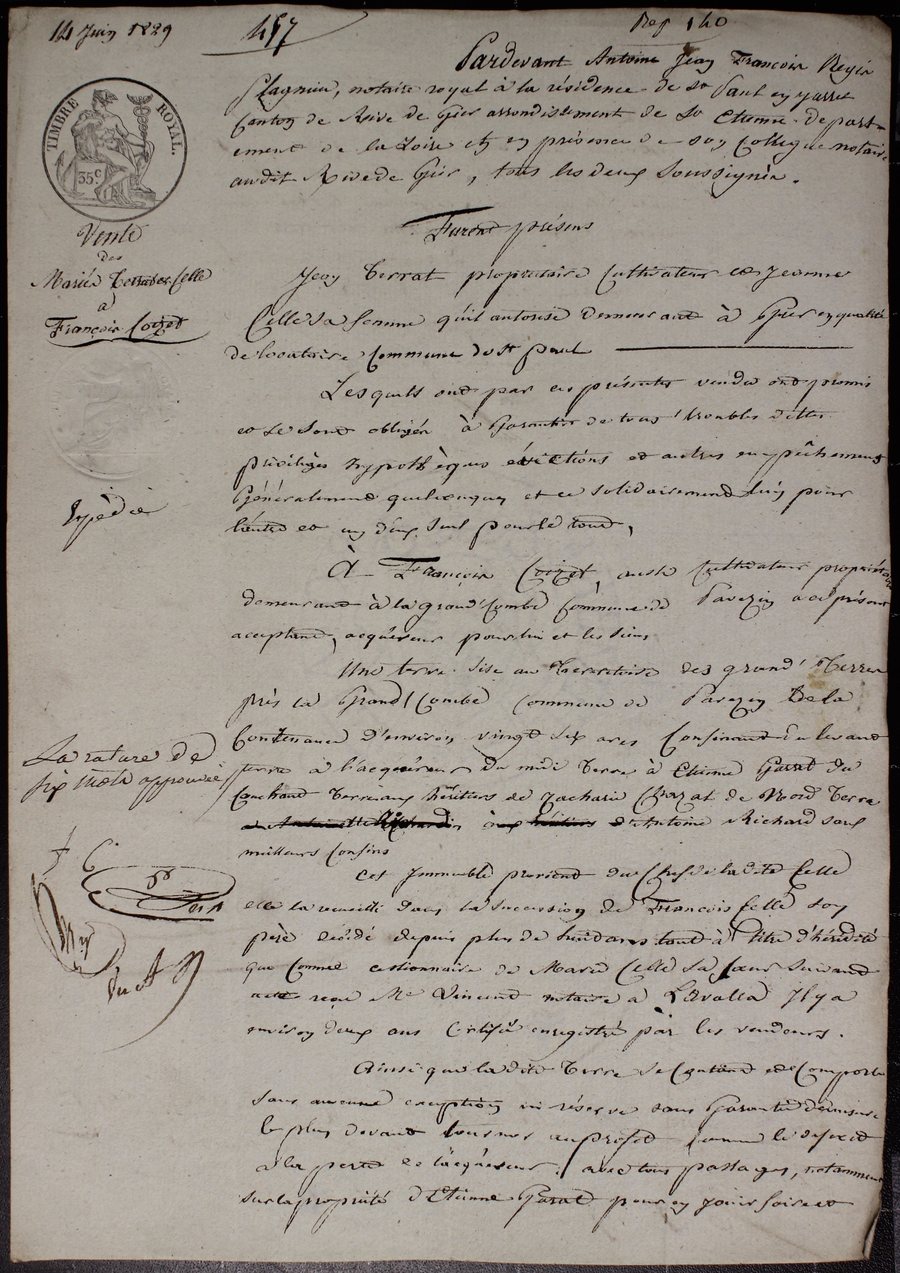 14 Juin 1829
157
Rep 140
Pardevant Antoine Jean François Regis
Plagnieu, notaire royal à la résidence de St Paul en Jarret
Canton de Rive de Gier arrondissement de St Etienne depart-
ement de la Loire et en présence de son Collegue notaire
audit Rive de Gier, tous les deux soussignés.
TIMBRE ROYAL.
35c
Vente
des
Mariés Terrat et Celle
à
François Coizet
Furent présens
Jean Terrat propriétaire Cultivateur et Jeanne
Celle sa femme qu'il autorise demeurant à Gier en qualité
de locataire Commune de St paul
Lesquels ont par ces présentes vendu ont promis
et se sont obligés à Garantir de tous troubles dettes
privilèges hypothèques évictions et autres empêchemens
Généralement quelconques et ce solidairement l'un pour
l'autre et un d'eux seul pour le tout,
Expédié
À François Coizet, aussi Cultivateur propriétaire
demeurant à la grand'Combe Commune de Pavezin a ce présent
acceptant, acquéreur pour lui et les siens
Une terre sise au Territoire des grand' Terres
près la Grand'Combe Commune de Pavezin De la
Contenance d'environ vingt six ares Confinant du levant
terre à l'acquéreur du midi Terre à Etienne Garat du
Couchant Terre aux héritiers de Zacharie Chorat de Nord Terre
aux héritiers d'Antoine Richard sauf
meilleurs Confins
La rature de
six mots approuvée
Cet Immeuble provient du Chef de la dite Celle
elle la recueilli dans la succession de François Celle son
père décédé depuis plus de huit ans tant à titre d'hérédité
que Comme cessionnaire de Marie Celle sa sœur suivant
acte reçu Me Vincent notaire à Lavalla Il y a
environ deux ans Certifié enregistré par les vendeurs.
Ainsi que la dite Terre se Contient et se Comporte
sans aucune exception ni réserve sans Garantie de mesure
le plus devant tourner au profit comme le déficit
à la perte de l'acquéreur; avec tous passages, notamment
sur la propriété d'Etienne Garat pour en jouir faire et